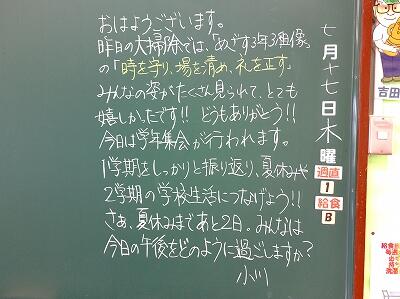 おはようございます。
昨日の大掃除では、「めざす3年3組像」
の「時を守り、場を清め、礼を正す。
みんなの姿がたくさん見られて、とても
嬉しかったです!! どうもありがとう!!
今日は学年集会が行われます。
1学期をしっかりと振り返り、夏休みや
2学期の学校生活につなげよう!!
さぁ、夏休みまであと2日。みんなは
今日の午後をどのように過ごしますか?
小川
七月十七日木曜
週直
1
給食
B
吉田